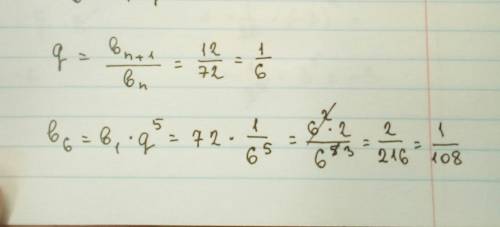 q = bₙ₊₁/bₙ = 12/72 = 1/6
b₆ = b₁ · q⁵ = 72 · 1/6⁵ = 6² · 2/6⁵ ³ = 2/216 = 1/108